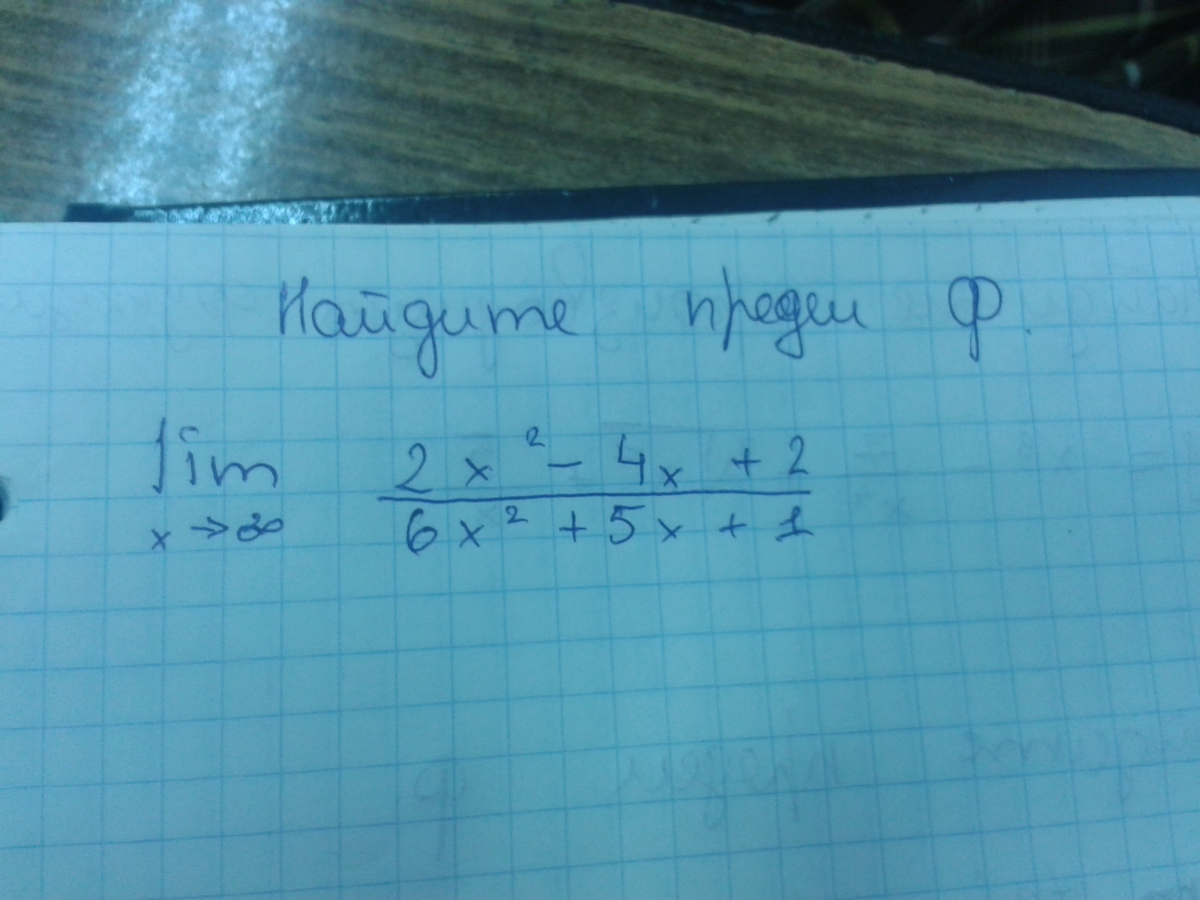 Найдите предел ф.
lim 2x² - 4x + 2
x→∞ 6x² + 5x + 1